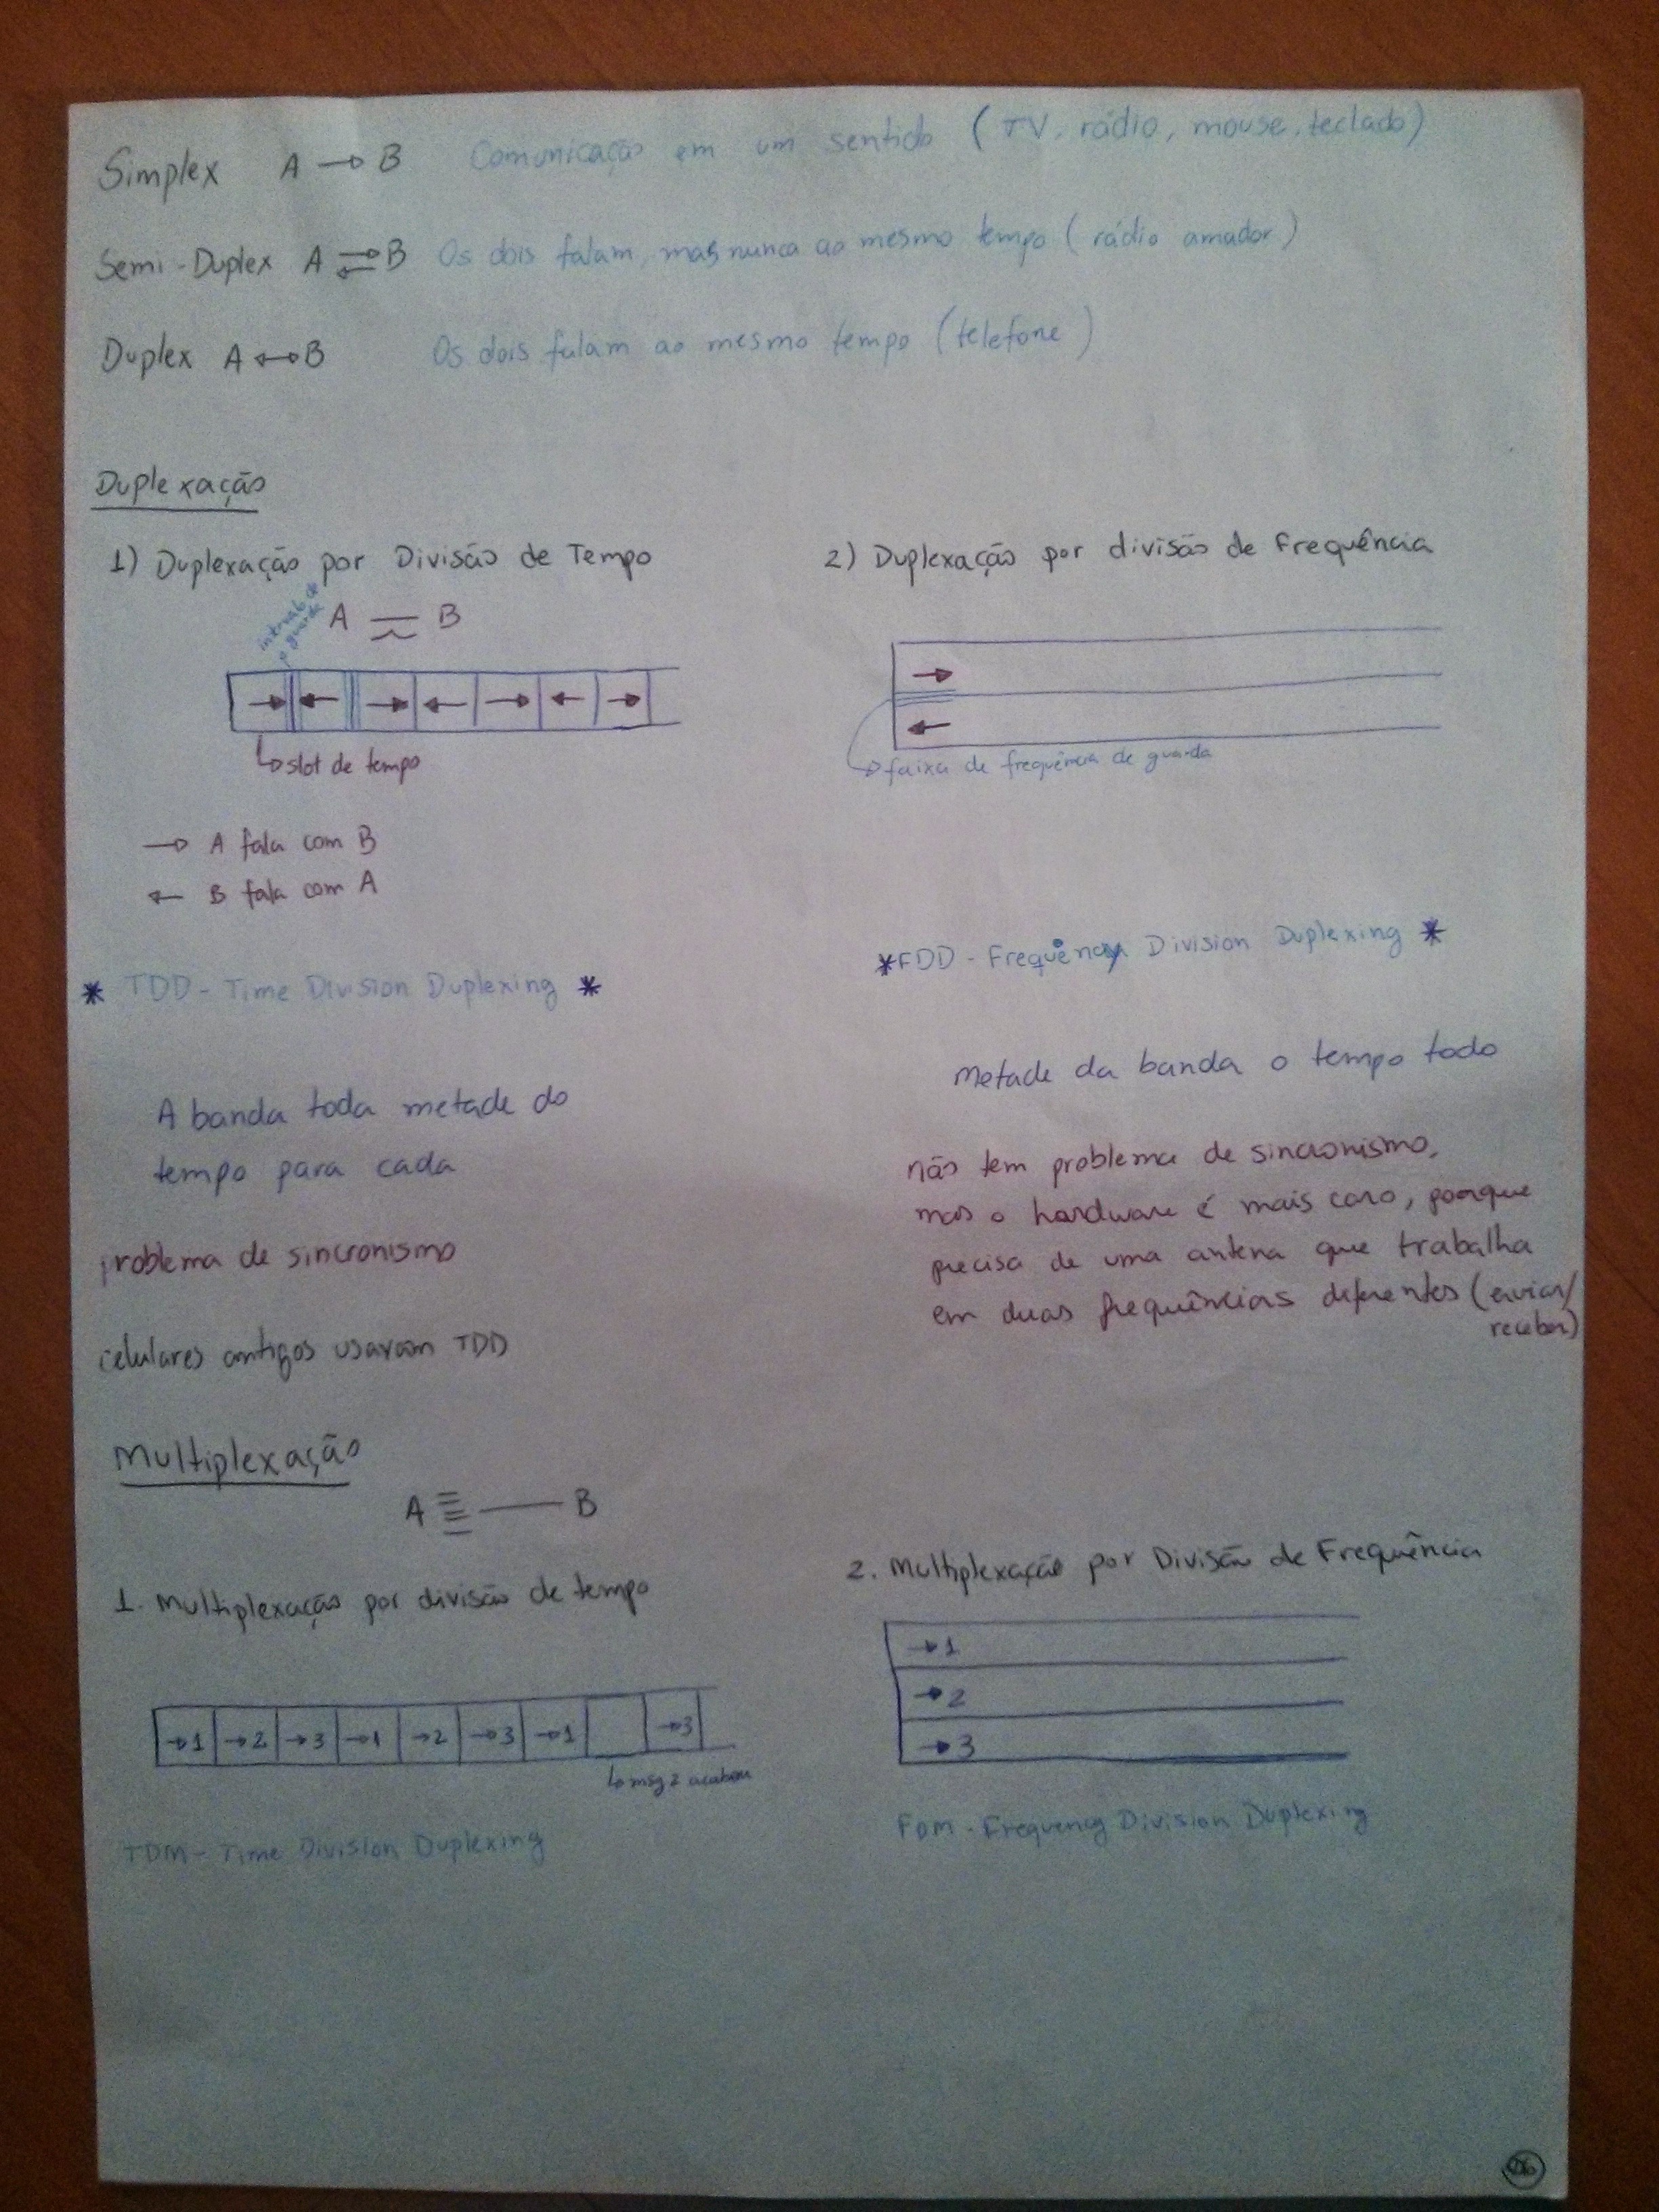 Simplex A → B Comunicação em um sentido (TV, rádio, mouse, teclado)
Semi-Duplex A ⇄ B Os dois falam, mas nunca ao mesmo tempo (rádio amador)
Duplex A ↔ B Os dois falam ao mesmo tempo (telefone)
Duplexação
1) Duplexação por Divisão de Tempo
intervalo de
guarda
A B
→ ← → ← → ← →
slot de tempo
→ A fala com B
← B fala com A
* TDD - Time Division Duplexing *
A banda toda metade do
tempo para cada
problema de sincronismo
celulares antigos usavam TDD
2) Duplexação por divisão de Frequência
→
←
faixa de frequência de guarda
*FDD - Frequency Division Duplexing *
Metade da banda o tempo todo
não tem problema de sincronismo,
mas o hardware é mais caro, porque
precisa de uma antena que trabalha
em duas frequências diferentes (enviar/
receber)
Multiplexação
A B
1. Multiplexação por divisão de tempo
→1 →2 →3 →1 →2 →3 →1 →3
msg 2 acabou
TDM - Time Division Duplexing
2. Multiplexação por Divisão de Frequência
→1
→2
→3
FDM - Frequency Division Duplexing